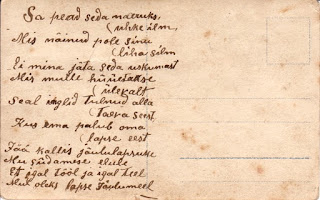 Sa pead seda naeruks,
(ühke ilm,
Mis näinud pole sinu
(liha silm
Ei mina jäta seda uskumast
Mis mulle hüüetakse
(ülevalt
Seal inglid tulnud alla
taeva seest
Kus ema palub oma
lapse eest
Jää kallis jõululapsuke
Mu südamese elule
Et igal tööl ja igal teel
Mul oleks lapse Jõulumeel